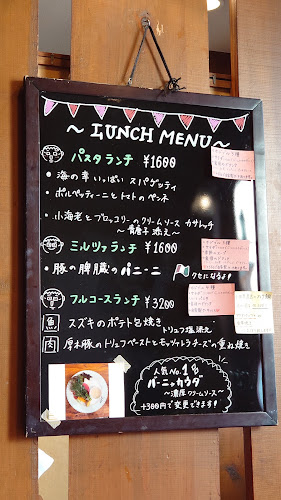 ～ LUNCH MENU ～
パスタランチ ¥1600
・海の幸いっぱい スパゲッティ
・ポルペッティーニとトマトのペンネ
・小海老とブロッコリーのクリームソース カサレッチ
～青唐子 添え～
ミルツァランチ ¥1600
・豚の脾臓のパニーニ
クセになるよ!!
フルコースランチ ¥3200
魚 スズキのポテト包焼き
トリュフ塩添え
肉 厚木豚のトリュフペーストとモッツァレラチーズの重ね焼き
人気No.1
バーニャカウダ
～濃厚クリームソース～
+300円で変更できます!